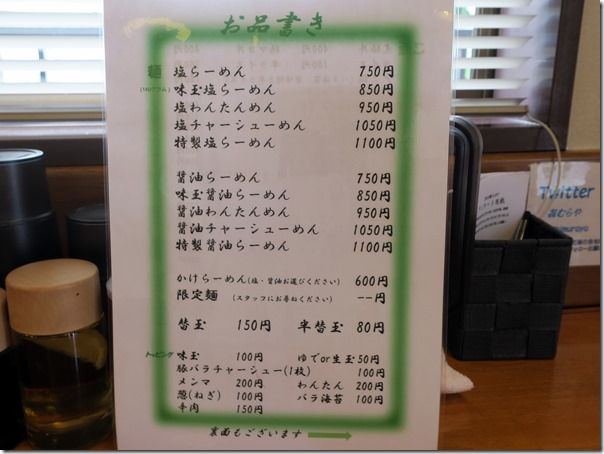 お品書き
麺 塩らーめん 750円
味玉塩らーめん 850円
塩わんたんめん 950円
塩チャーシューめん 1050円
特製塩らーめん 1100円
醤油らーめん 750円
味玉醤油らーめん 850円
醤油わんたんめん 950円
醤油チャーシューめん 1050円
特製醤油らーめん 1100円
かけらーめん(塩・醤油お選びください) 600円
限定麺 (スタッフにお尋ねください) --円
替玉 150円 半替玉 80円
トッピング 味玉 100円 ゆでor生玉50円
豚バラチャーシュー(1枚) 100円
メンマ 200円 わんたん 200円
葱(ねぎ) 100円 バラ海苔 100円
辛肉 150円
裏面もございます
Twitter